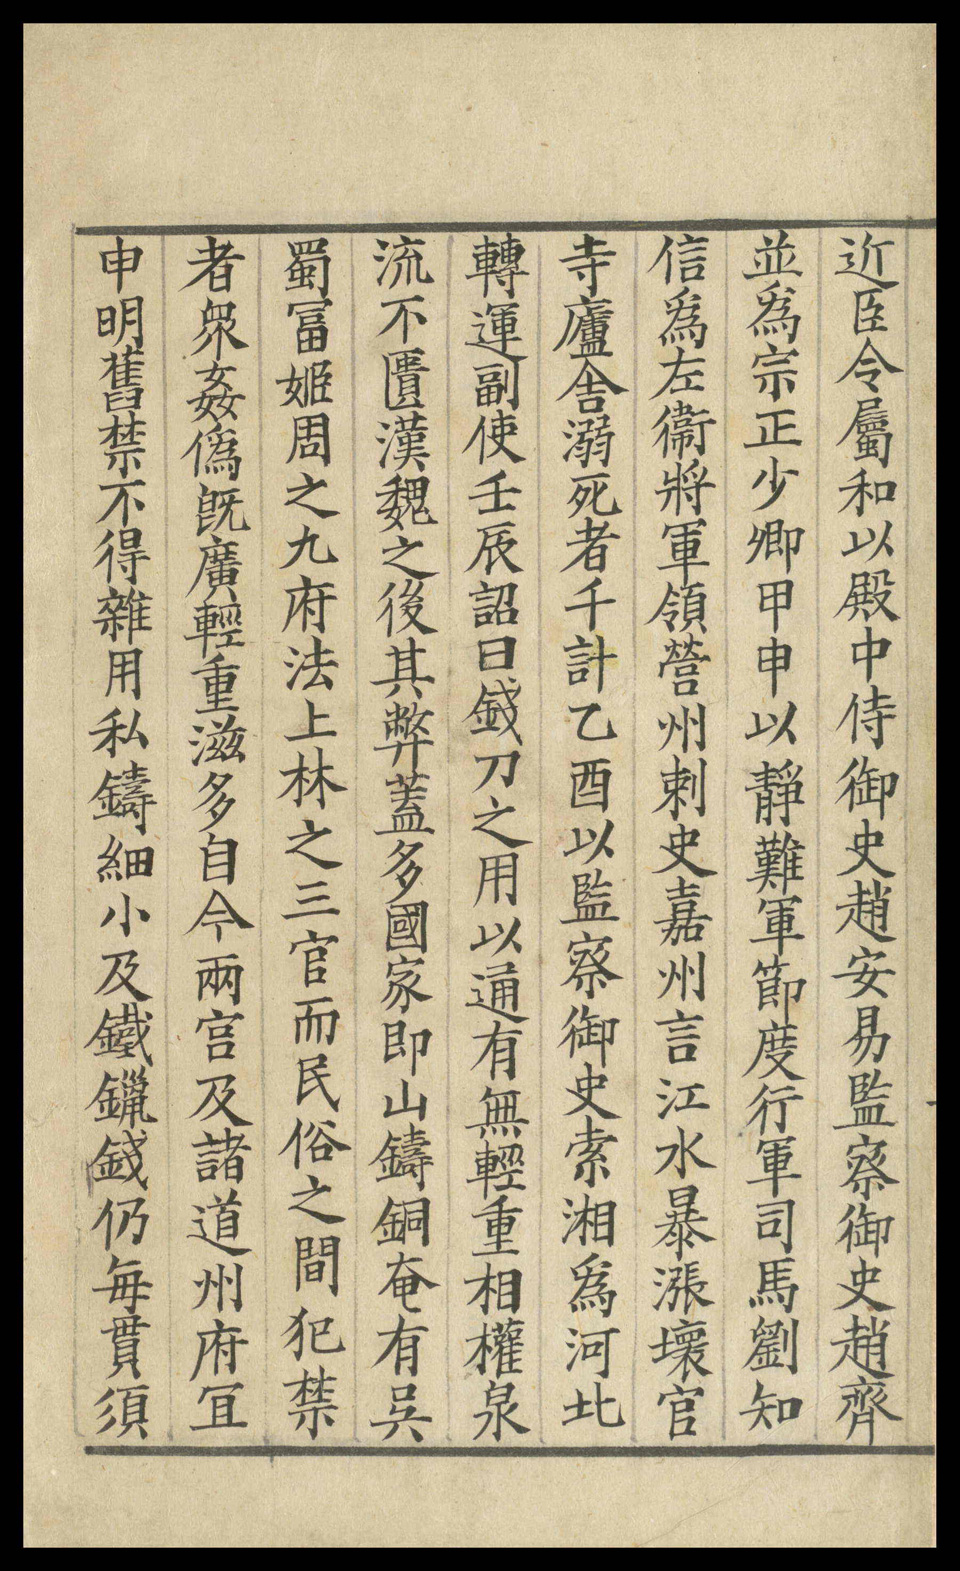 近臣令屬和以殿中侍御史趙安易監察御史趙齊
並爲宗正少卿甲申以靜難軍節度行軍司馬劉知
信爲左衞將軍領營州刺史嘉州言江水暴漲壞官
寺廬舎溺死者千計乙酉以監察御史索湘爲河北
轉運副使壬辰詔曰錢刀之用以通有無輕重相權泉
流不匱漢魏之後其弊蓋多國家即山鑄銅奄有吳
蜀冨姬周之九府法上林之三官而民俗之間犯禁
者衆姦僞旣廣輕重滋多自今兩宫及諸道州府冝
申明舊禁不得雜用私鑄細小及鐵鑞錢仍每貫須